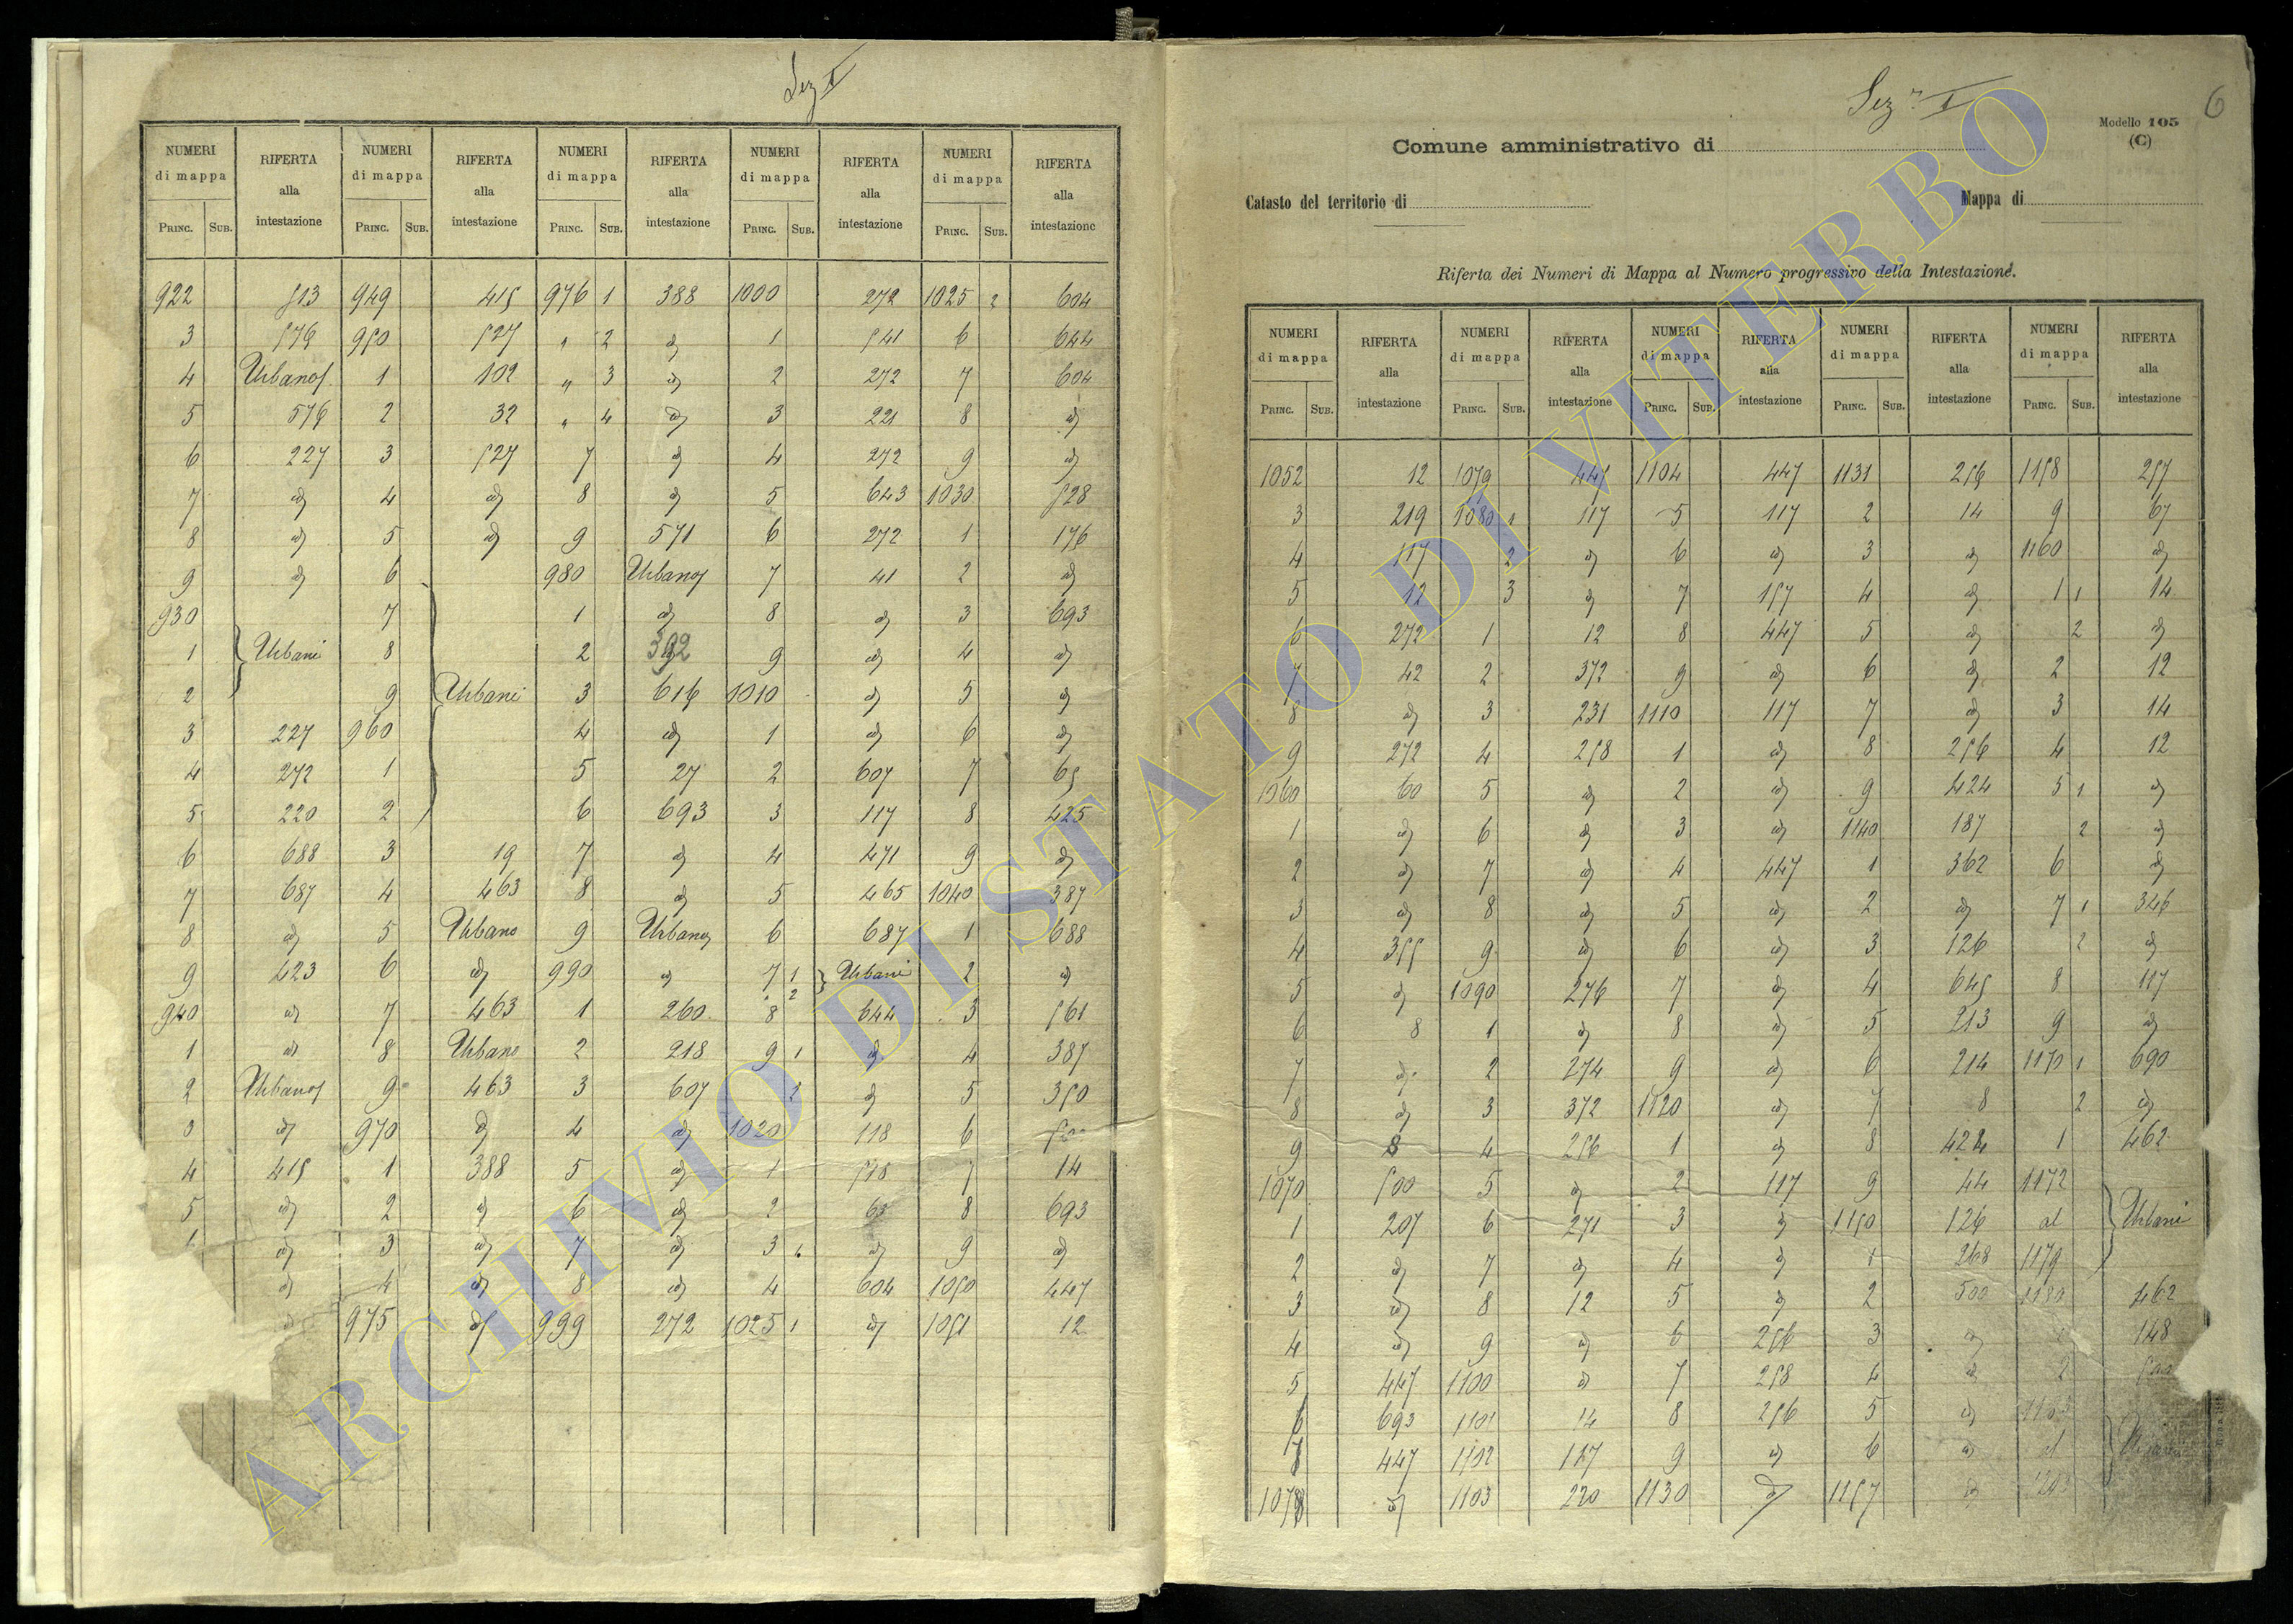 Sez I
NUMERI di mappa RIFERTA alla intestazione NUMERI di mappa RIFERTA alla intestazione NUMERI di mappa RIFERTA alla intestazione NUMERI di mappa RIFERTA alla intestazione NUMERI di mappa RIFERTA alla intestazione
PRINC. SUB. PRINC. SUB. PRINC. SUB. PRINC. SUB. PRINC. SUB.
922 513 949 415 976 1 388 1000 272 1025 2 604
3 576 950 527 " 2 id 1 541 6 644
4 Urbano 1 102 " 3 id 2 272 7 604
5 576 2 32 " 4 id 3 221 8 id
6 227 3 527 7 id 4 272 9 id
7 id 4 id 8 id 5 643 1030 528
8 id 5 id 9 571 6 272 1 176
9 id 6 980 Urbano 7 41 2 id
930 7 1 id 8 id 3 693
1 Urbani 8 2 392 9 id 4 id
2 9 Urbani 3 616 1010 id 5 id
3 227 960 4 id 1 id 6 id
4 272 1 5 27 2 607 7 65
5 220 2 6 693 3 117 8 425
6 688 3 19 7 id 4 471 9 id
7 687 4 463 8 id 5 465 1040 387
8 id 5 Urbano 9 Urbano 6 687 1 688
9 423 6 id 990 id 7 1 Urbani 2 id
2
940 id 7 463 1 260 8 644 3 561
1 id 8 Urbano 2 218 9 1 id 4 387
2 Urbano 9 463 3 607 2 id 5 350
id 970 id 4 id 1020 118 6
4 415 1 388 5 id 1 518 7 14
5 id 2 id 6 id 2 63 8 693
id 3 id 7 id 3 id 9 id
id 4 id 8 id 4 604 1050 447
975 id 999 272 1025 1 id 1051 12
Sez.ne I
6
Modello 105
(C)
Comune amministrativo di
Catasto del territorio di Mappa di
Riferta dei Numeri di Mappa al Numero progressivo della Intestazione.
NUMERI di mappa RIFERTA alla intestazione NUMERI di mappa RIFERTA alla intestazione NUMERI di mappa RIFERTA alla intestazione NUMERI di mappa RIFERTA alla intestazione NUMERI di mappa RIFERTA alla intestazione
PRINC. SUB. PRINC. SUB. PRINC. SUB. PRINC. SUB. PRINC. SUB.
1052 12 1079 447 1104 447 1131 256 1158 257
3 219 1080 1 117 5 117 2 14 9 67
4 117 2 id 6 id 3 id 1160 id
5 12 3 id 7 157 4 id 1 1 14
6 272 1 12 8 447 5 id 2 id
7 42 2 372 9 id 6 id 2 12
8 id 3 231 1110 117 7 id 3 14
9 272 4 258 1 id 8 256 4 12
1060 60 5 id 2 id 9 424 5 1 id
1 id 6 id 3 id 1140 187 2 id
2 id 7 id 4 447 1 362 6 id
3 id 8 id 5 id 2 id 7 1 346
4 355 9 id 6 id 3 126 2 id
5 id 1090 276 7 id 4 645 8 117
6 8 1 id 8 id 5 213 9 id
7 id 2 274 9 id 6 214 1170 1 690
8 id 3 372 1120 id 7 8 2 id
9 8 4 256 1 id 8 424 1 462
1070 500 5 id 2 117 9 44 1172
1 207 6 271 3 id 1150 126 al Urbani
2 id 7 id 4 id 1 268 1179
3 id 8 12 5 id 2 500 1180 462
4 id 9 id 6 256 3 id 148
5 447 1100 id 7 258 4 id 2
6 693 1101 14 8 256 5 id
7 447 1102 127 9 id 6 id al
1078 id 1103 220 1130 id 1157 id
ARCHIVIO DI STATO DI VITERBO